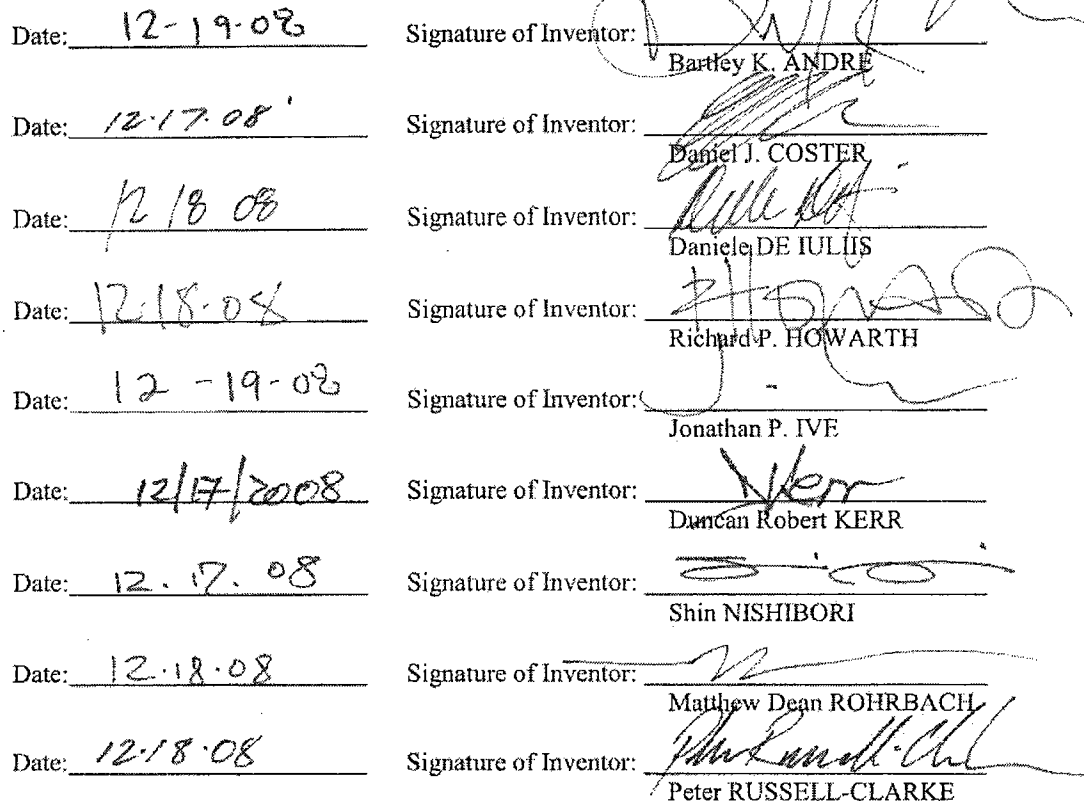 Date: 12-19-08 Signature of Inventor:
Bartley K. ANDRE
Date: 12.17.08 Signature of Inventor:
Daniel J. COSTER
Date: 12 18 08 Signature of Inventor:
Daniele DE IULIIS
Date: 12.18.08 Signature of Inventor:
Richard P. HOWARTH
Date: 12-19-08 Signature of Inventor:
Jonathan P. IVE
Date: 12/17/2008 Signature of Inventor: Kerr
Duncan Robert KERR
Date: 12.17.08 Signature of Inventor:
Shin NISHIBORI
Date: 12.18.08 Signature of Inventor:
Matthew Dean ROHRBACH
Date: 12.18.08 Signature of Inventor:
Peter RUSSELL-CLARKE